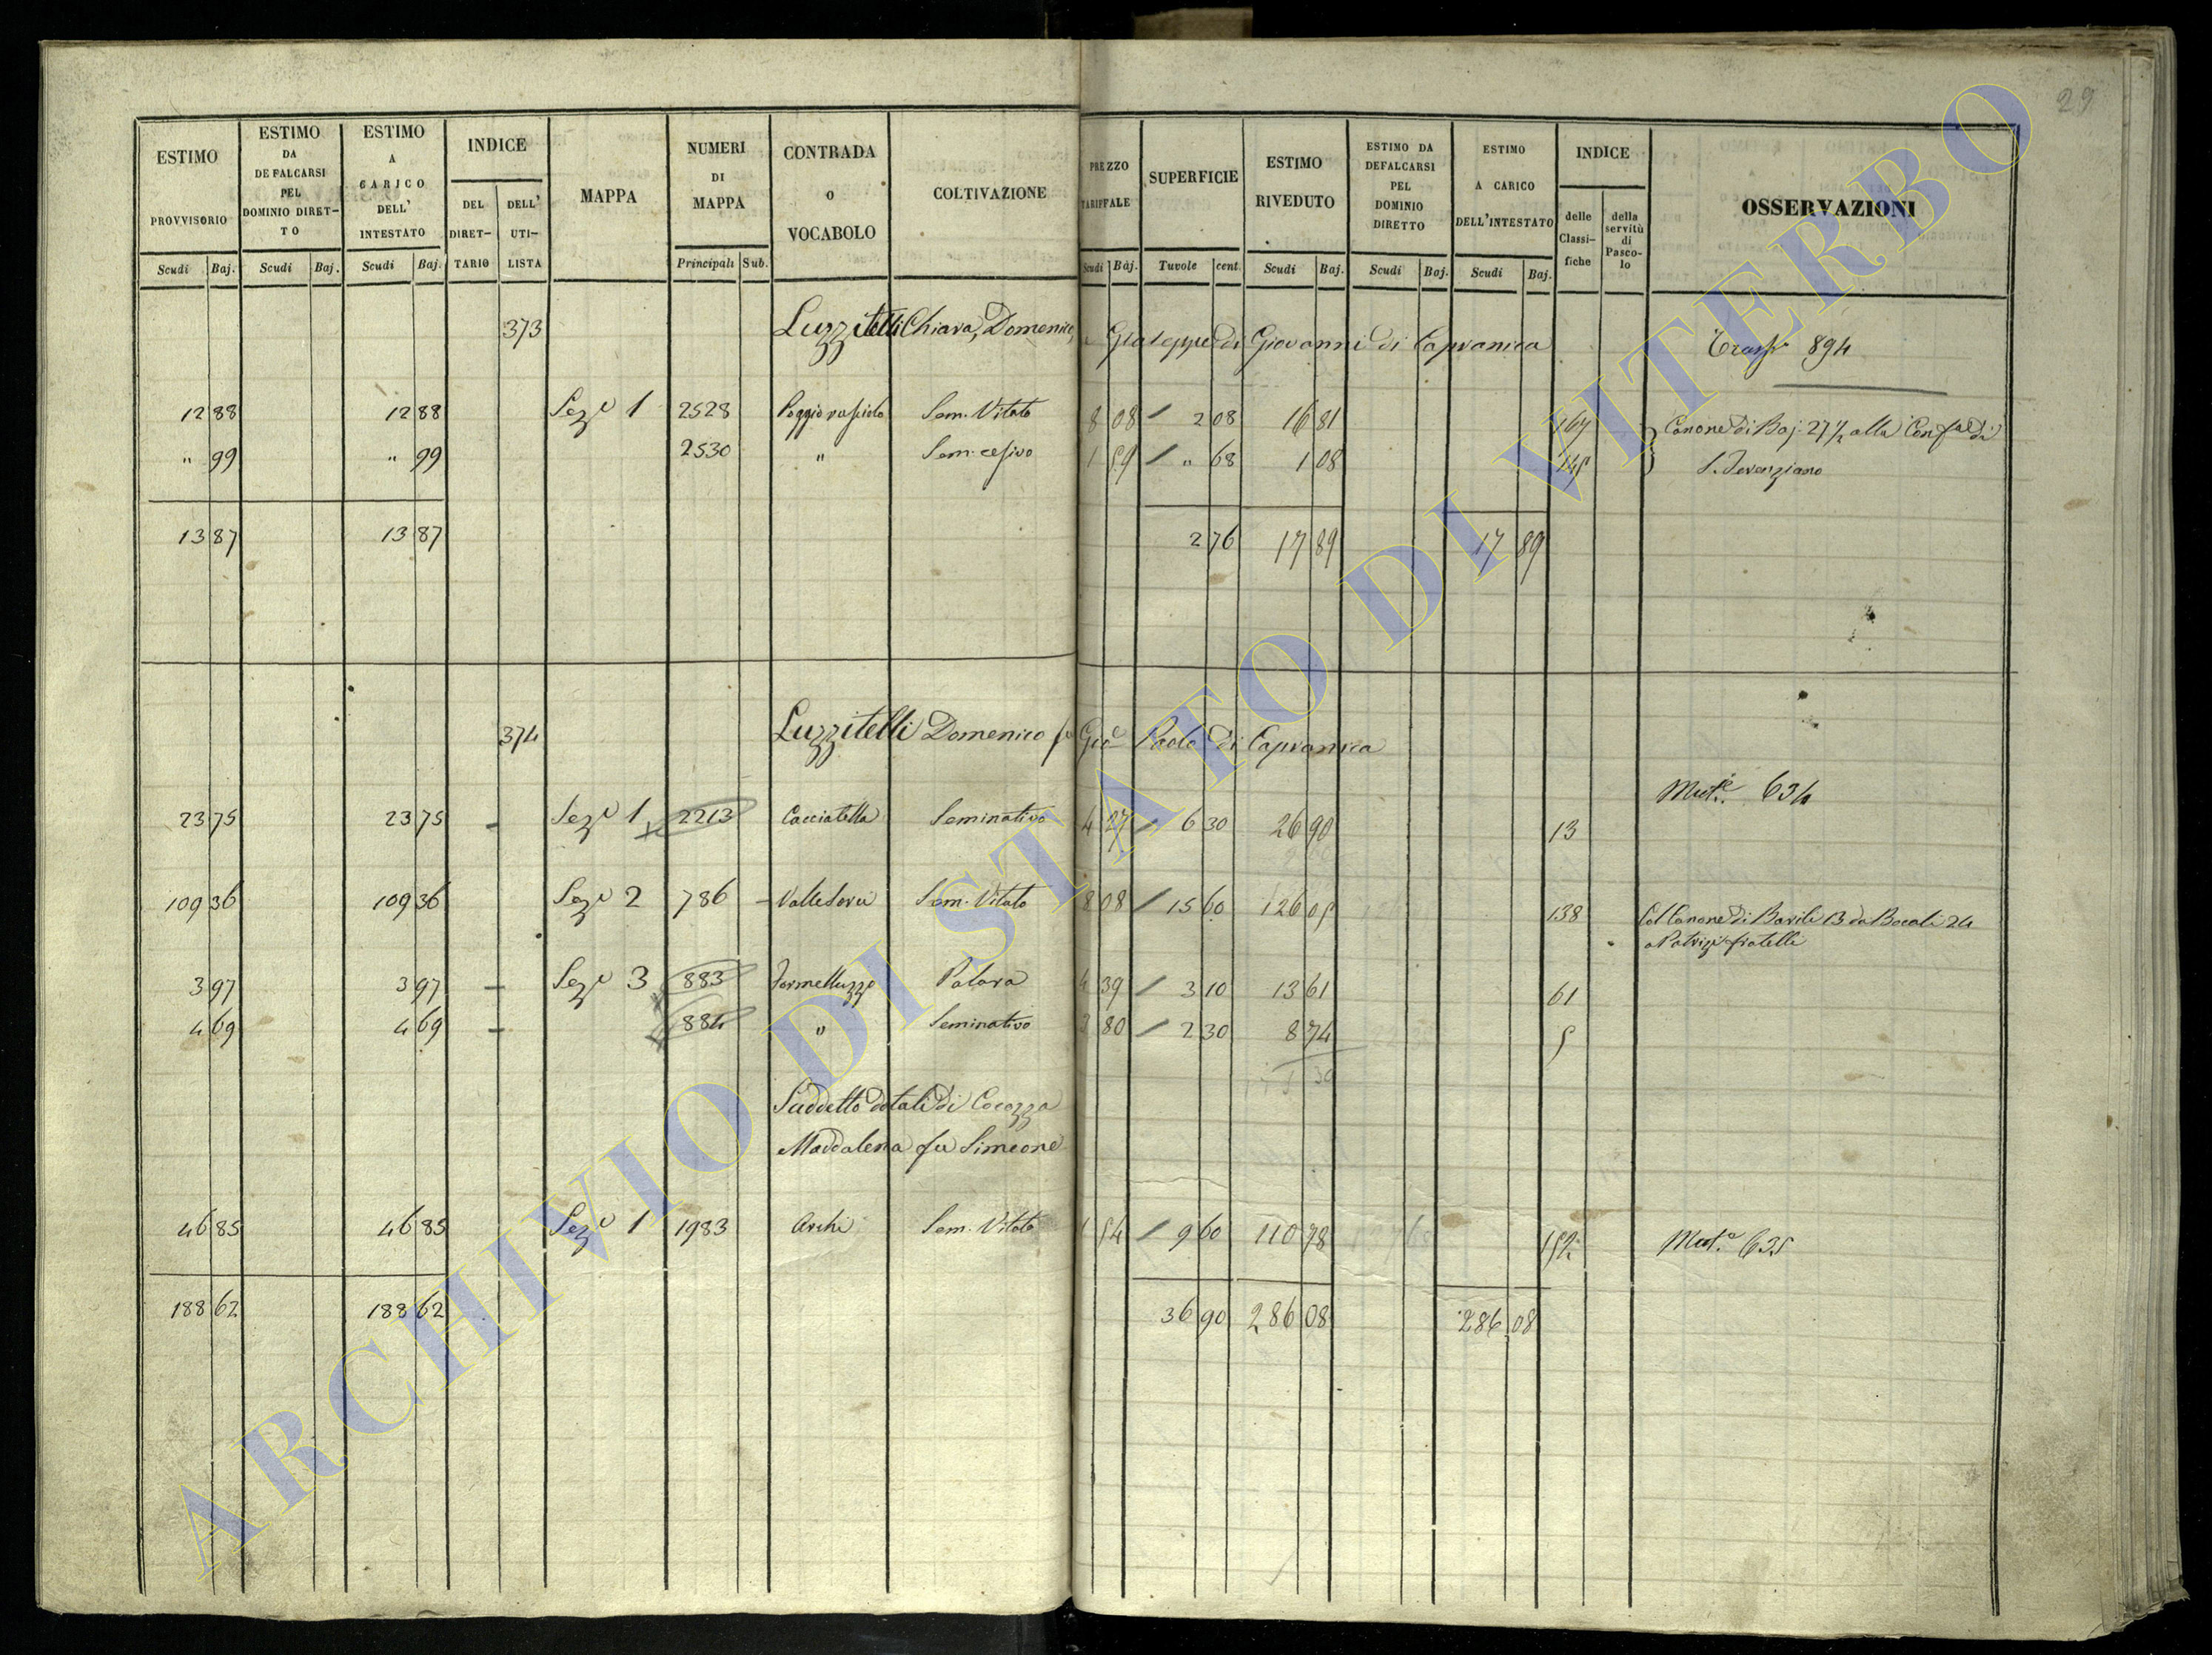 29
ESTIMO PROVVISORIO Scudi Baj.
ESTIMO DA DEFALCARSI PEL DOMINIO DIRET-TO Scudi Baj.
ESTIMO A CARICO DELL' INTESTATO Scudi Baj.
INDICE DEL DIRET-TARIO DELL' UTI-LISTA
MAPPA
NUMERI DI MAPPA Principali Sub.
CONTRADA o VOCABOLO
COLTIVAZIONE
PREZZO TARIFFALE Scudi Baj.
SUPERFICIE Tavole cent.
ESTIMO RIVEDUTO Scudi Baj.
ESTIMO DA DEFALCARSI PEL DOMINIO DIRETTO Scudi Baj.
ESTIMO A CARICO DELL'INTESTATO Scudi Baj.
INDICE delle Classi-fiche della servitù di Pasco-lo
OSSERVAZIONI
373 Luzzitelli Chiara, Domenico, e Giuseppe di Giovanni di Capranica Trasp. 894
12 88 12 88 Sez.e 1 2528 Sem. Vitato 8 08 2 08 16 81 167 Canone di Baj. 27 1/2 alla
" 99 " 99 2530 " 1 59 " 68 1 08 145 S. Terenziano
13 87 13 87 2 76 17 89 17 89
374 Luzzitelli Domenico fu Gio: Paolo di Capranica
Mut.e 634
23 75 23 75 Sez.e 1 2213 Cacciatella Seminativo 4 27 6 30 26 90 13
109 36 109 36 Sez.e 2 786 Sem. Vitato 8 08 15 60 126 05 138 Col Canone di Barili 13 da Bocali 24
a Patrizi fratelli
3 97 3 97 Sez.e 3 883 4 39 3 10 13 61 61
4 69 4 69 884 " Seminativo 3 80 2 30 8 74 5
Suddetto dotali di Cocozza
Maddalena fu Simeone
46 85 46 85 Sez.e 1 1983 Archi Sem. Vitato 9 60 110 78 Mut.e 635
188 62 188 62 36 90 286 08 286 08
ARCHIVIO DI STATO DI VITERBO